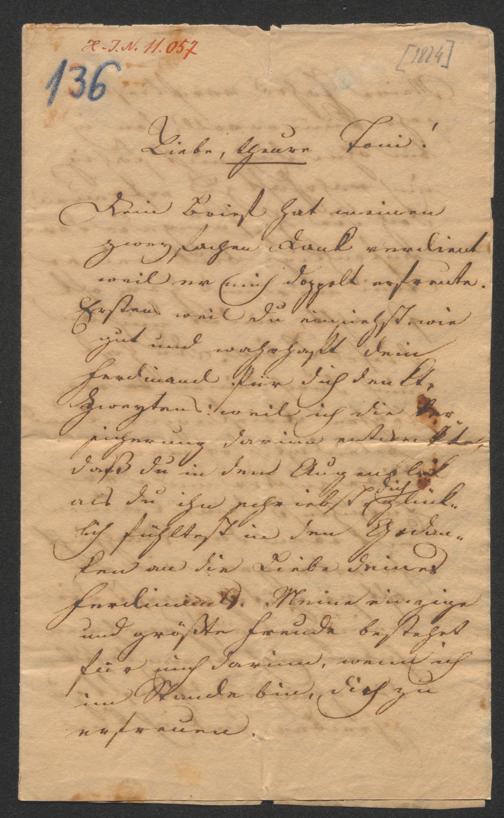 H.-I.N. 11.057
[1824]
136
Liebe, theure Toni!
Dein Brief hat meinen
zweyfachen Dank verdient
weil er mich doppelt erfreute.
Erstens weil du einsiehst wie
gut und wahrhaft dein
Ferdinand für dich denkt,
Zweytens: weil ich die Ver
sicherung darinn entdeckte,
daß du in dem Augenblick
als du ihn schriebst dich glück-
lich fühltest in den Gedan-
ken an die Liebe deines
Ferdinands. Meine einzige
und größte Freude bestehet
für mich darinn, wenn ich
im Stande bin, dich zu
erfreuen.